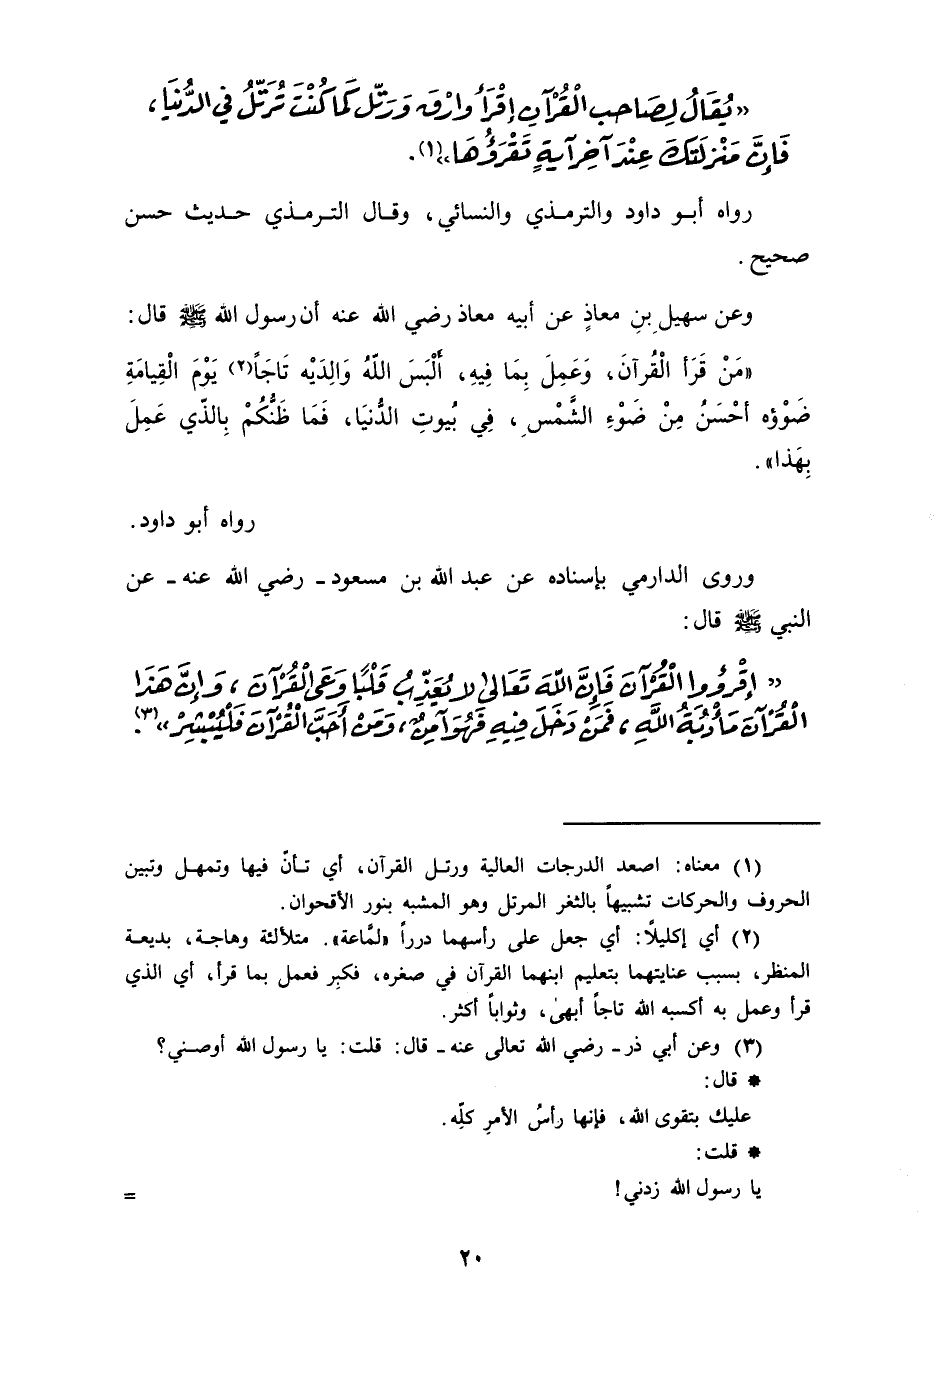 «يُقَالُ لِصَاحِبِ الْقُرْآنِ إِقْرَأْ وارْقَ وَرَتِّل كَمَا كُنْتَ تُرَتِّلُ فِي الدُّنيَا،
فَإِنَّ مَنْزِلَتَكَ عِنْدَ آخِرِ آيةٍ تَقْرَؤُهَا»(١).
رواه أبو داود والترمذي والنسائي، وقال الترمذي حديث حسن
صحيح.
وعن سهيل بنِ معاذٍ عن أبيه معاذ رضي الله عنه أن رسول الله ﷺ قال:
«مَنْ قَرَأَ الْقُرآنَ، وَعَمِلَ بِمَا فِيهِ، أَلْبَسَ اللَّهُ وَالِدَيْه تَاجَاً(٢) يَوْمَ الْقِيامَةِ
ضَوْؤه أَحْسَنُ مِنْ ضَوْءِ الشَّمْسِ، فِي بُيوتِ الدُّنيَا، فَمَا ظَنُّكُمْ بِالذّي عَمِلَ
بِهَذا».
رواه أبو داود.
وروى الدارمي بإسناده عن عبد الله بن مسعود ـ رضي الله عنه ـ عن
النبي ﷺ قال:
«إِقْرؤُوا الْقُرْآنَ فَإِنَّ اللَّهَ تَعَالى لا يُعَذِّبُ قَلْبًا وَعَى الْقُرْآنَ، وَإِنَّ هَذَا
الْقُرْآنَ مَأْدُبَةُ اللَّهِ، فَمَنْ دَخَلَ فِيهِ فَهُوَ آمِنٌ، وَمَنْ أَحَبَّ الْقُرْآنَ فَلْيُبْشِرْ»(٣).
(١) معناه: اصعد الدرجات العالية ورتل القرآن، أي تأنّ فيها وتمهل وتبين
الحروف والحركات تشبيهاً بالثغر المرتل وهو المشبه بنور الأقحوان.
(٢) أي إكليلًا: أي جعل على رأسهما درراً «لمَّاعة». متلألئة وهاجة، بديعة
المنظر، بسبب عنايتهما بتعليم ابنهما القرآن في صغره، فكبِر فعمل بما قرأ، أي الذي
قرأ وعمل به أكسبه الله تاجاً أبهىٰ، وثواباً أكثر.
(٣) وعن أبي ذر ـ رضي الله تعالى عنه ـ قال: قلت: يا رسول الله أوصني؟
* قال:
عليك بتقوى الله، فإنها رأسُ الأمرِ كلّه.
* قلت:
يا رسول الله زدني!
=
٢٠